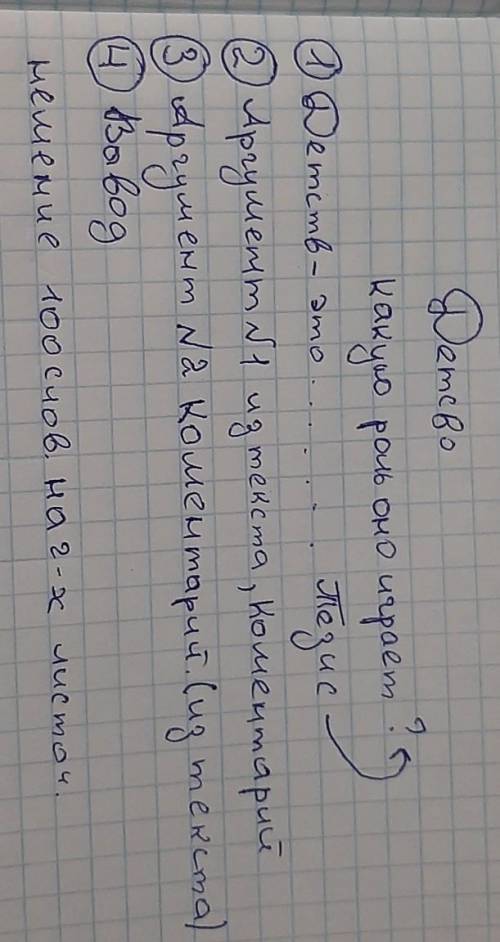 Детсво
Какую роль оно играет?
① Детств - это . . . . . . . Тезис
② Аргумент №1 из текста, Коментарий
③ Аргумент №2 Коментарий. (из текста)
④ Вывод
немение 100 слов. на 2-х листоч.